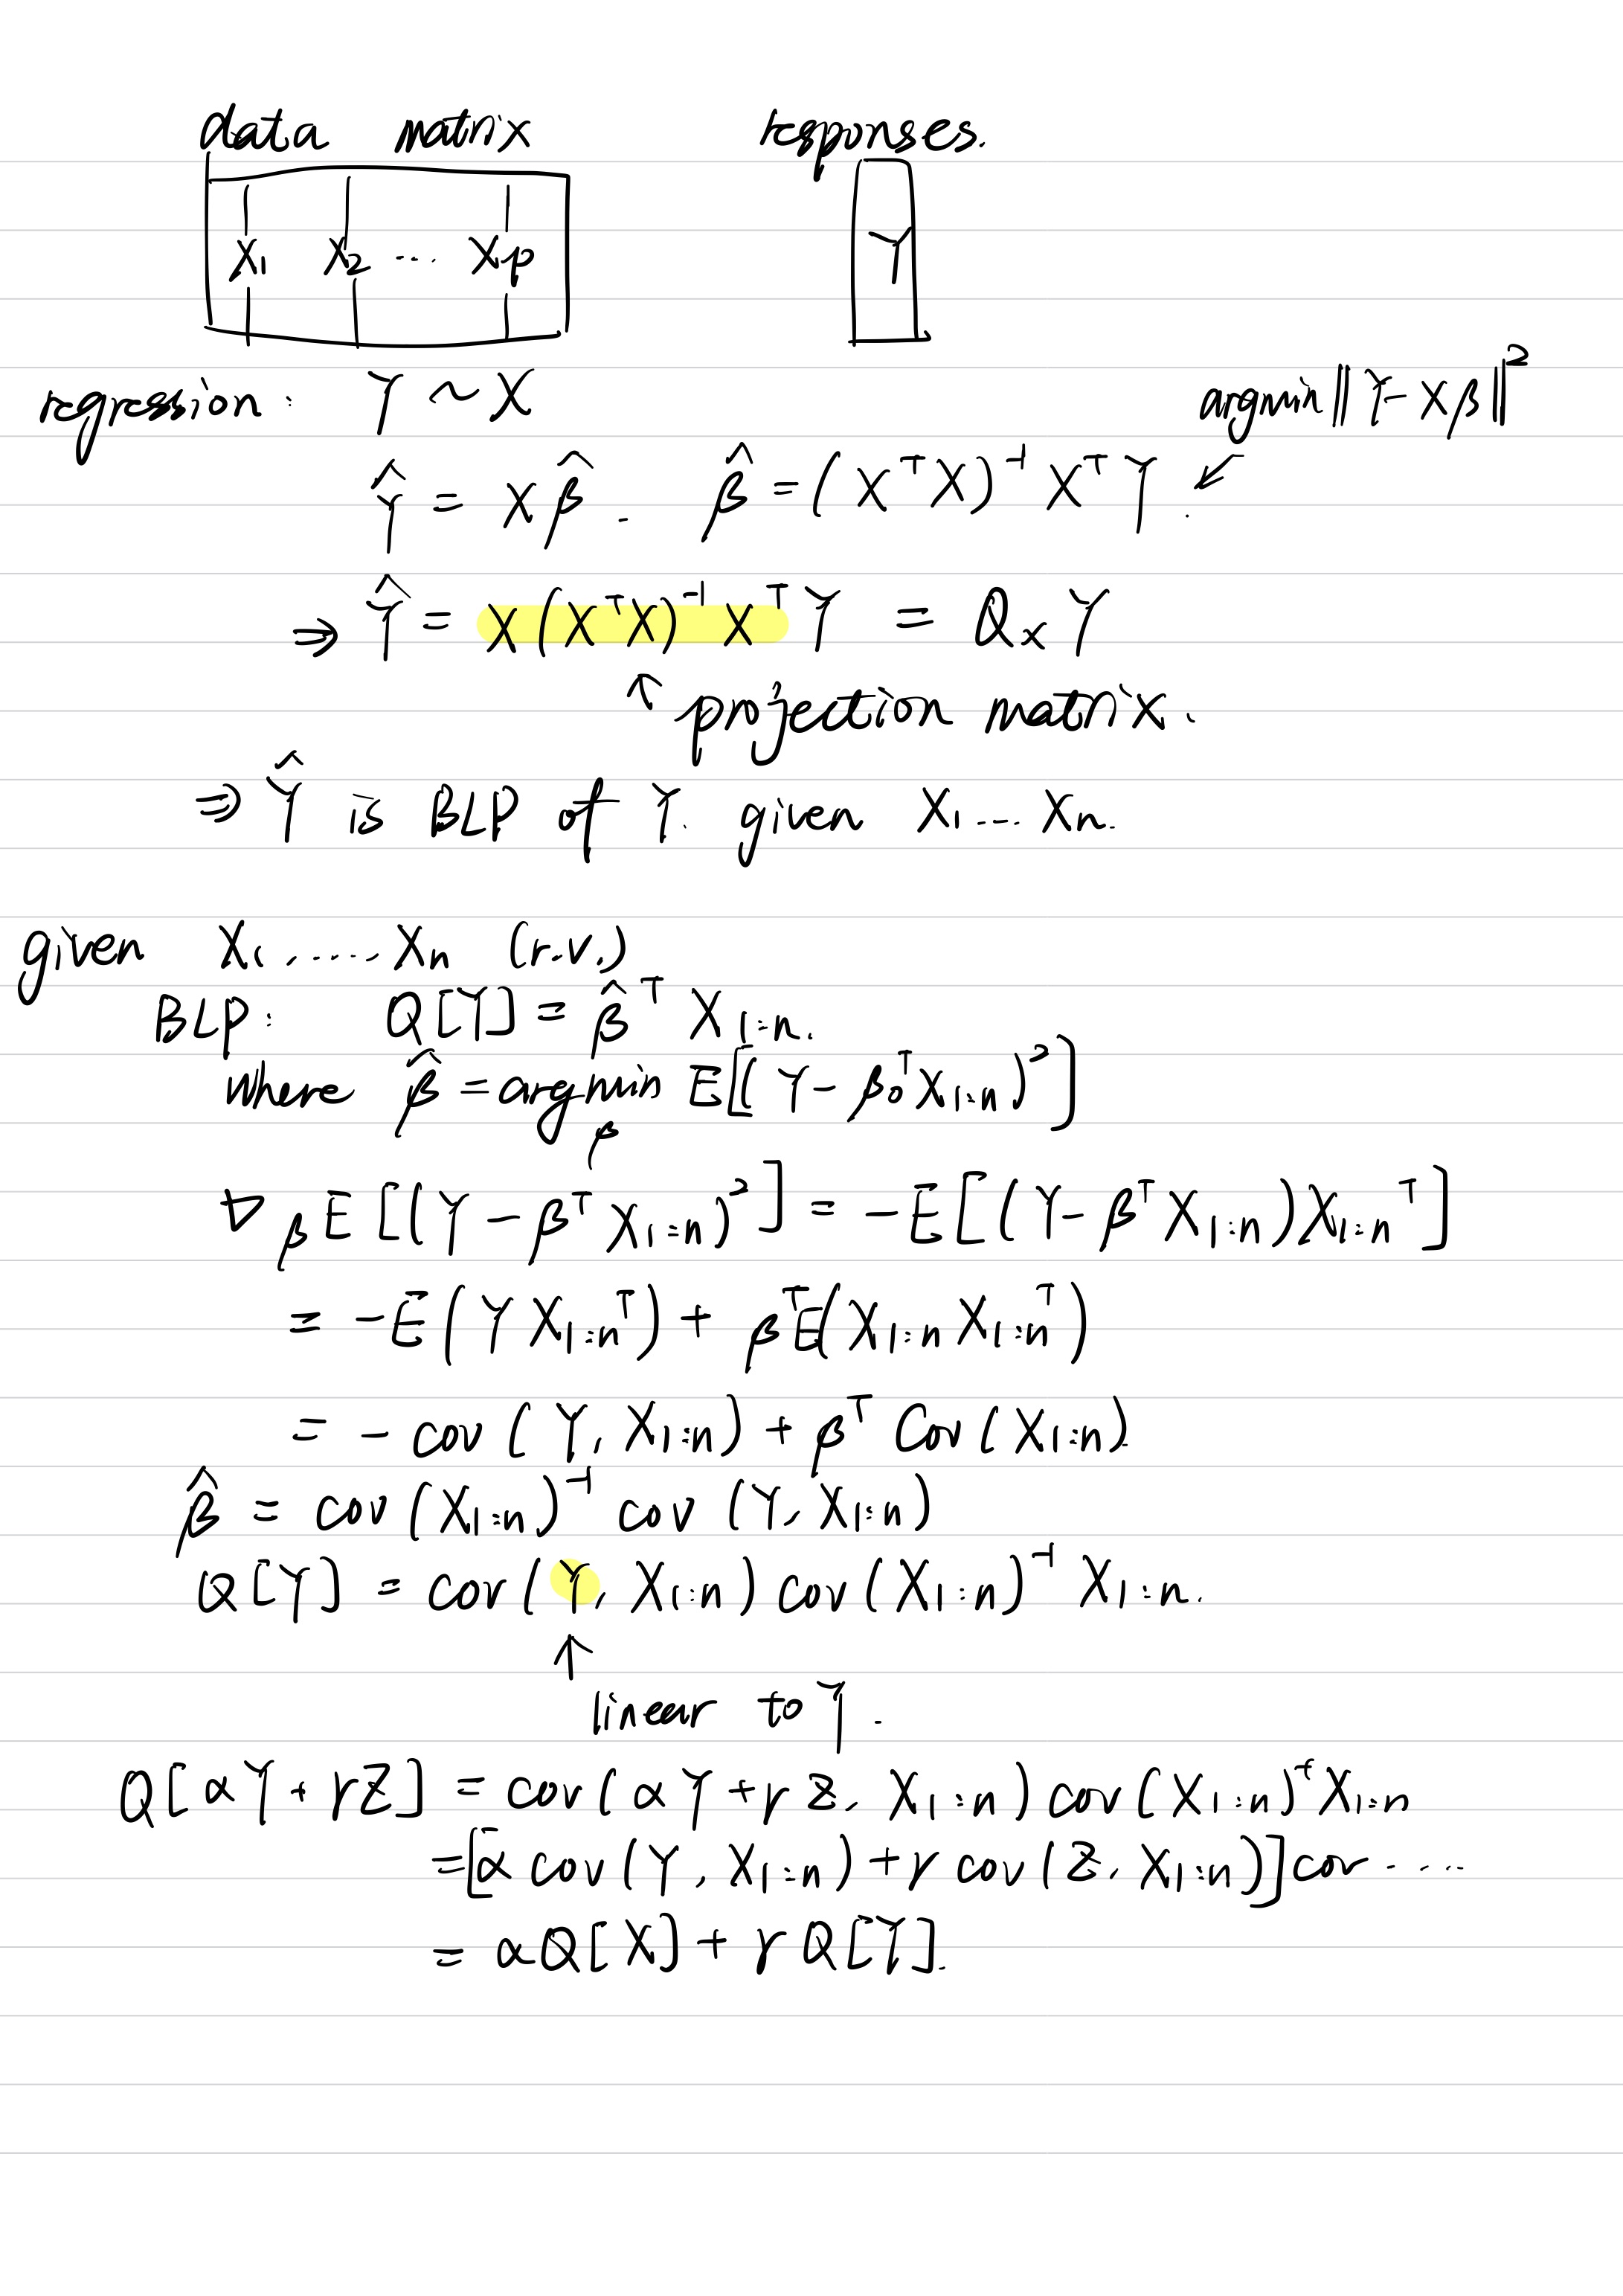 data matrix responses.
X₁ X₂ ... Xₚ Y
regression: Y ~ X argmin ‖Y - Xβ‖²
Ŷ = Xβ̂. β̂ = (XᵀX)⁻¹XᵀY.
⇒ Ŷ = X(XᵀX)⁻¹XᵀY = QₓY
↑ projection matrix.
⇒ Ŷ is BLP of Y. given X₁ ... Xₙ.
given X₁, ..... Xₙ (r.v.)
BLP: Q[Y] = β̂ᵀ X₁:ₙ.
where β̂ = argmin_β E[(Y - β₀ᵀX₁:ₙ)²]
∇_β E[(Y - βᵀX₁:ₙ)²] = -E[(Y - βᵀX₁:ₙ)X₁:ₙᵀ]
= -E(Y X₁:ₙᵀ) + βᵀE(X₁:ₙ X₁:ₙᵀ)
= - cov(Y, X₁:ₙ) + βᵀ Cov(X₁:ₙ).
β̂ = cov(X₁:ₙ)⁻¹ cov(Y, X₁:ₙ)
Q[Y] = cov(Y, X₁:ₙ) cov(X₁:ₙ)⁻¹ X₁:ₙ.
↑
linear to Y.
Q[αY + γZ] = cov(αY + γZ, X₁:ₙ) cov(X₁:ₙ)⁻¹X₁:ₙ
= [α cov(Y, X₁:ₙ) + γ cov(Z, X₁:ₙ)] cov ....
= αQ[X] + γQ[Y].